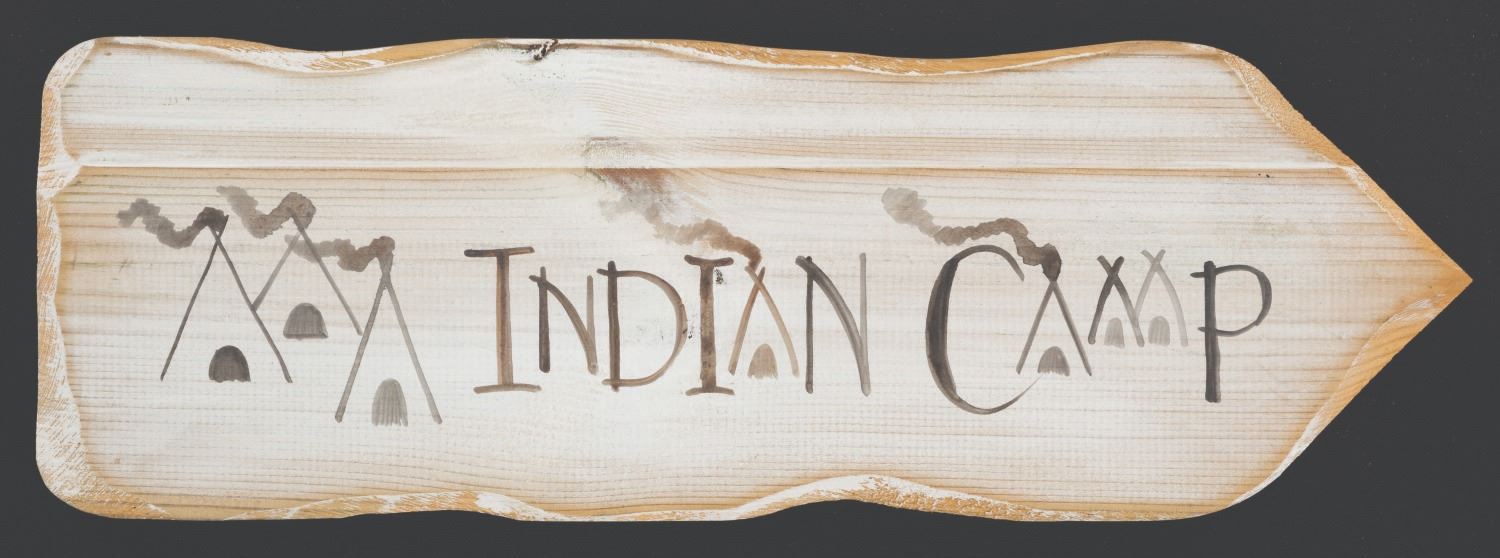 INDIAN CAMP